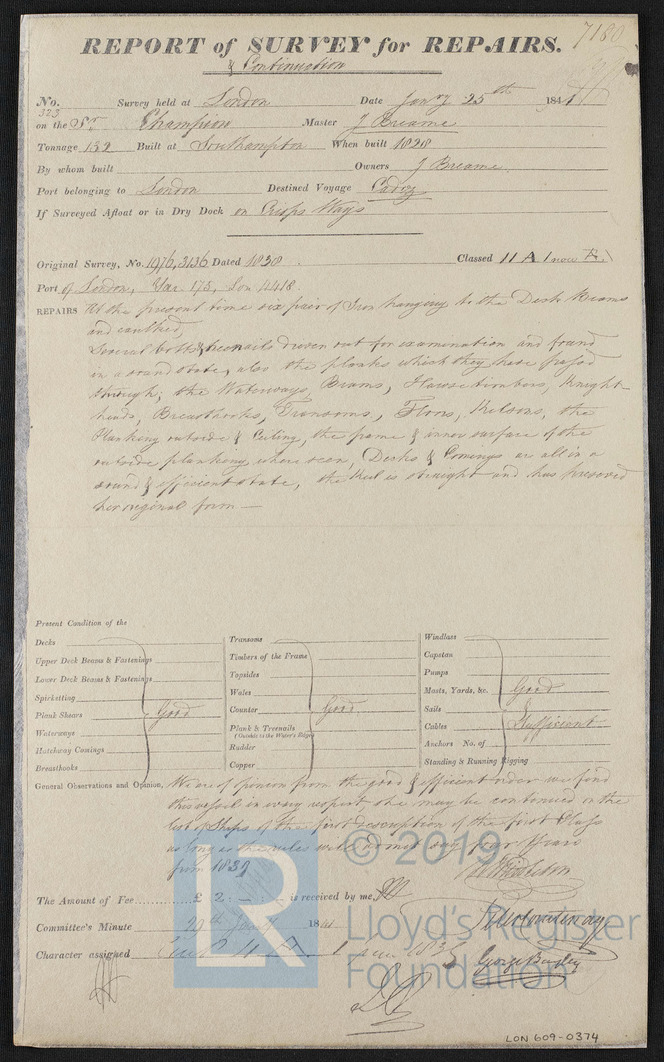 7180
REPORT of SURVEY for REPAIRS.
& Continuation
No. 323 Survey held at London Date Jany 25th 1841
on the Sr Champion Master J Breame
Tonnage 132 Built at Southampton When built 1828
By whom built Owners J Breame
Port belonging to London Destined Voyage Cadiz
If Surveyed Afloat or in Dry Dock on Crisps Ways
Original Survey, No. 1976, 3136 Dated 1838. Classed 11 A 1 now
Port of London, Yar. 175, Lon 4418
REPAIRS At the present time six pair of Iron hanging to the Deck Beams
and caulked,
Several bolts & treenails driven out for examination and found
in a sound state, also the planks which they have passed
through; the Waterways, Beams, Hawsetimbers, Knight
heads, Breasthooks, Transoms, Floors, Kelsons, the
Planking outside & Ceiling, the frame & inner surface of the
outside planking where seen, Decks & Comings are all in a
sound & efficient state, the Keel is straight and has preserved
her original form —
Present Condition of the
Decks Transoms Windlass
Upper Deck Beams & Fastenings Timbers of the Frame Capstan
Lower Deck Beams & Fastenings Topsides Pumps
Spirketting Wales Masts, Yards, &c. Good
Plank Shears Good Counter Good Sails
Waterways Plank & Treenails (Outside to the Water's Edge) Cables Sufficient
Hatchway Comings Rudder Anchors No. of
Breasthooks Copper Standing & Running Rigging
General Observations and Opinion, We are of opinion from the good & efficient order we find
this vessel in every respect, she may be continued on the
list of Ships of the first description of the first Class
as long as the rules will admit say four Years
from 1839
The Amount of Fee £ 2 : — : — is received by me
Committee's Minute 29th Jany 1841
Character assigned
George Bayley
© 2019
LR
Lloyd's Register
Foundation
LON 609-0374